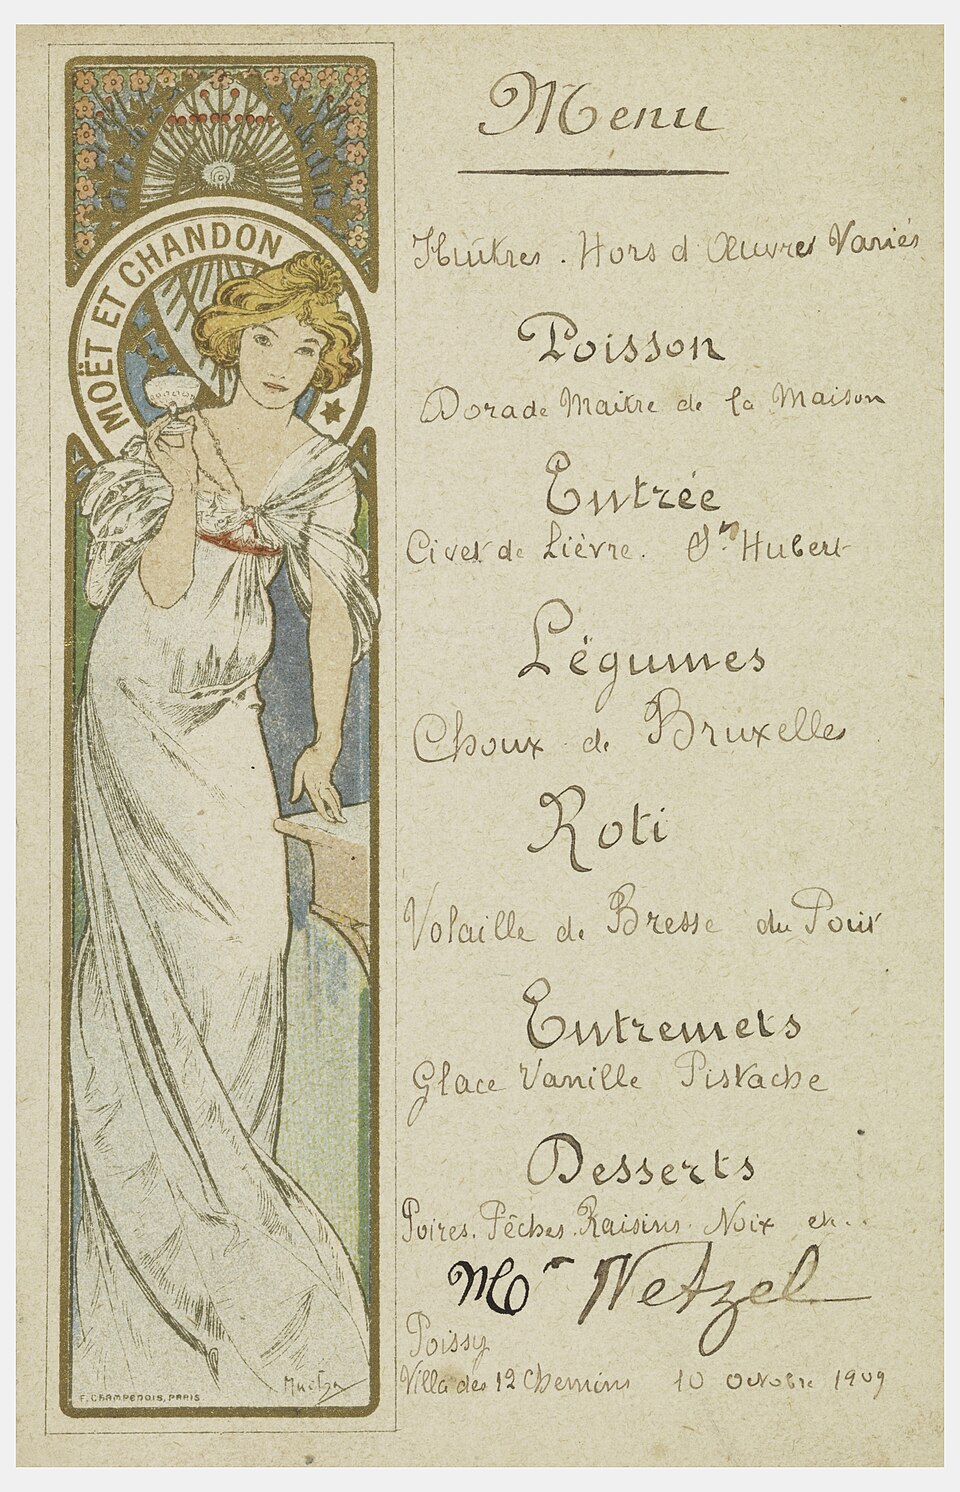 MOËT ET CHANDON
Menu
Huîtres. Hors d'Œuvres Variés
Poisson
Dorade Maitre de la Maison
Entrée
Civet de Lièvre. St Hubert
Légumes
Choux de Bruxelles
Roti
Volaille de Bresse du Pouis
Entremets
Glace Vanille Pistache
Desserts
Poires. Pêches. Raisins. Noix etc..
Mr Wetzel
Poissy
Villa des 12 Chemins 10 Octobre 1909
Mucha
F. CHAMPENOIS, PARIS